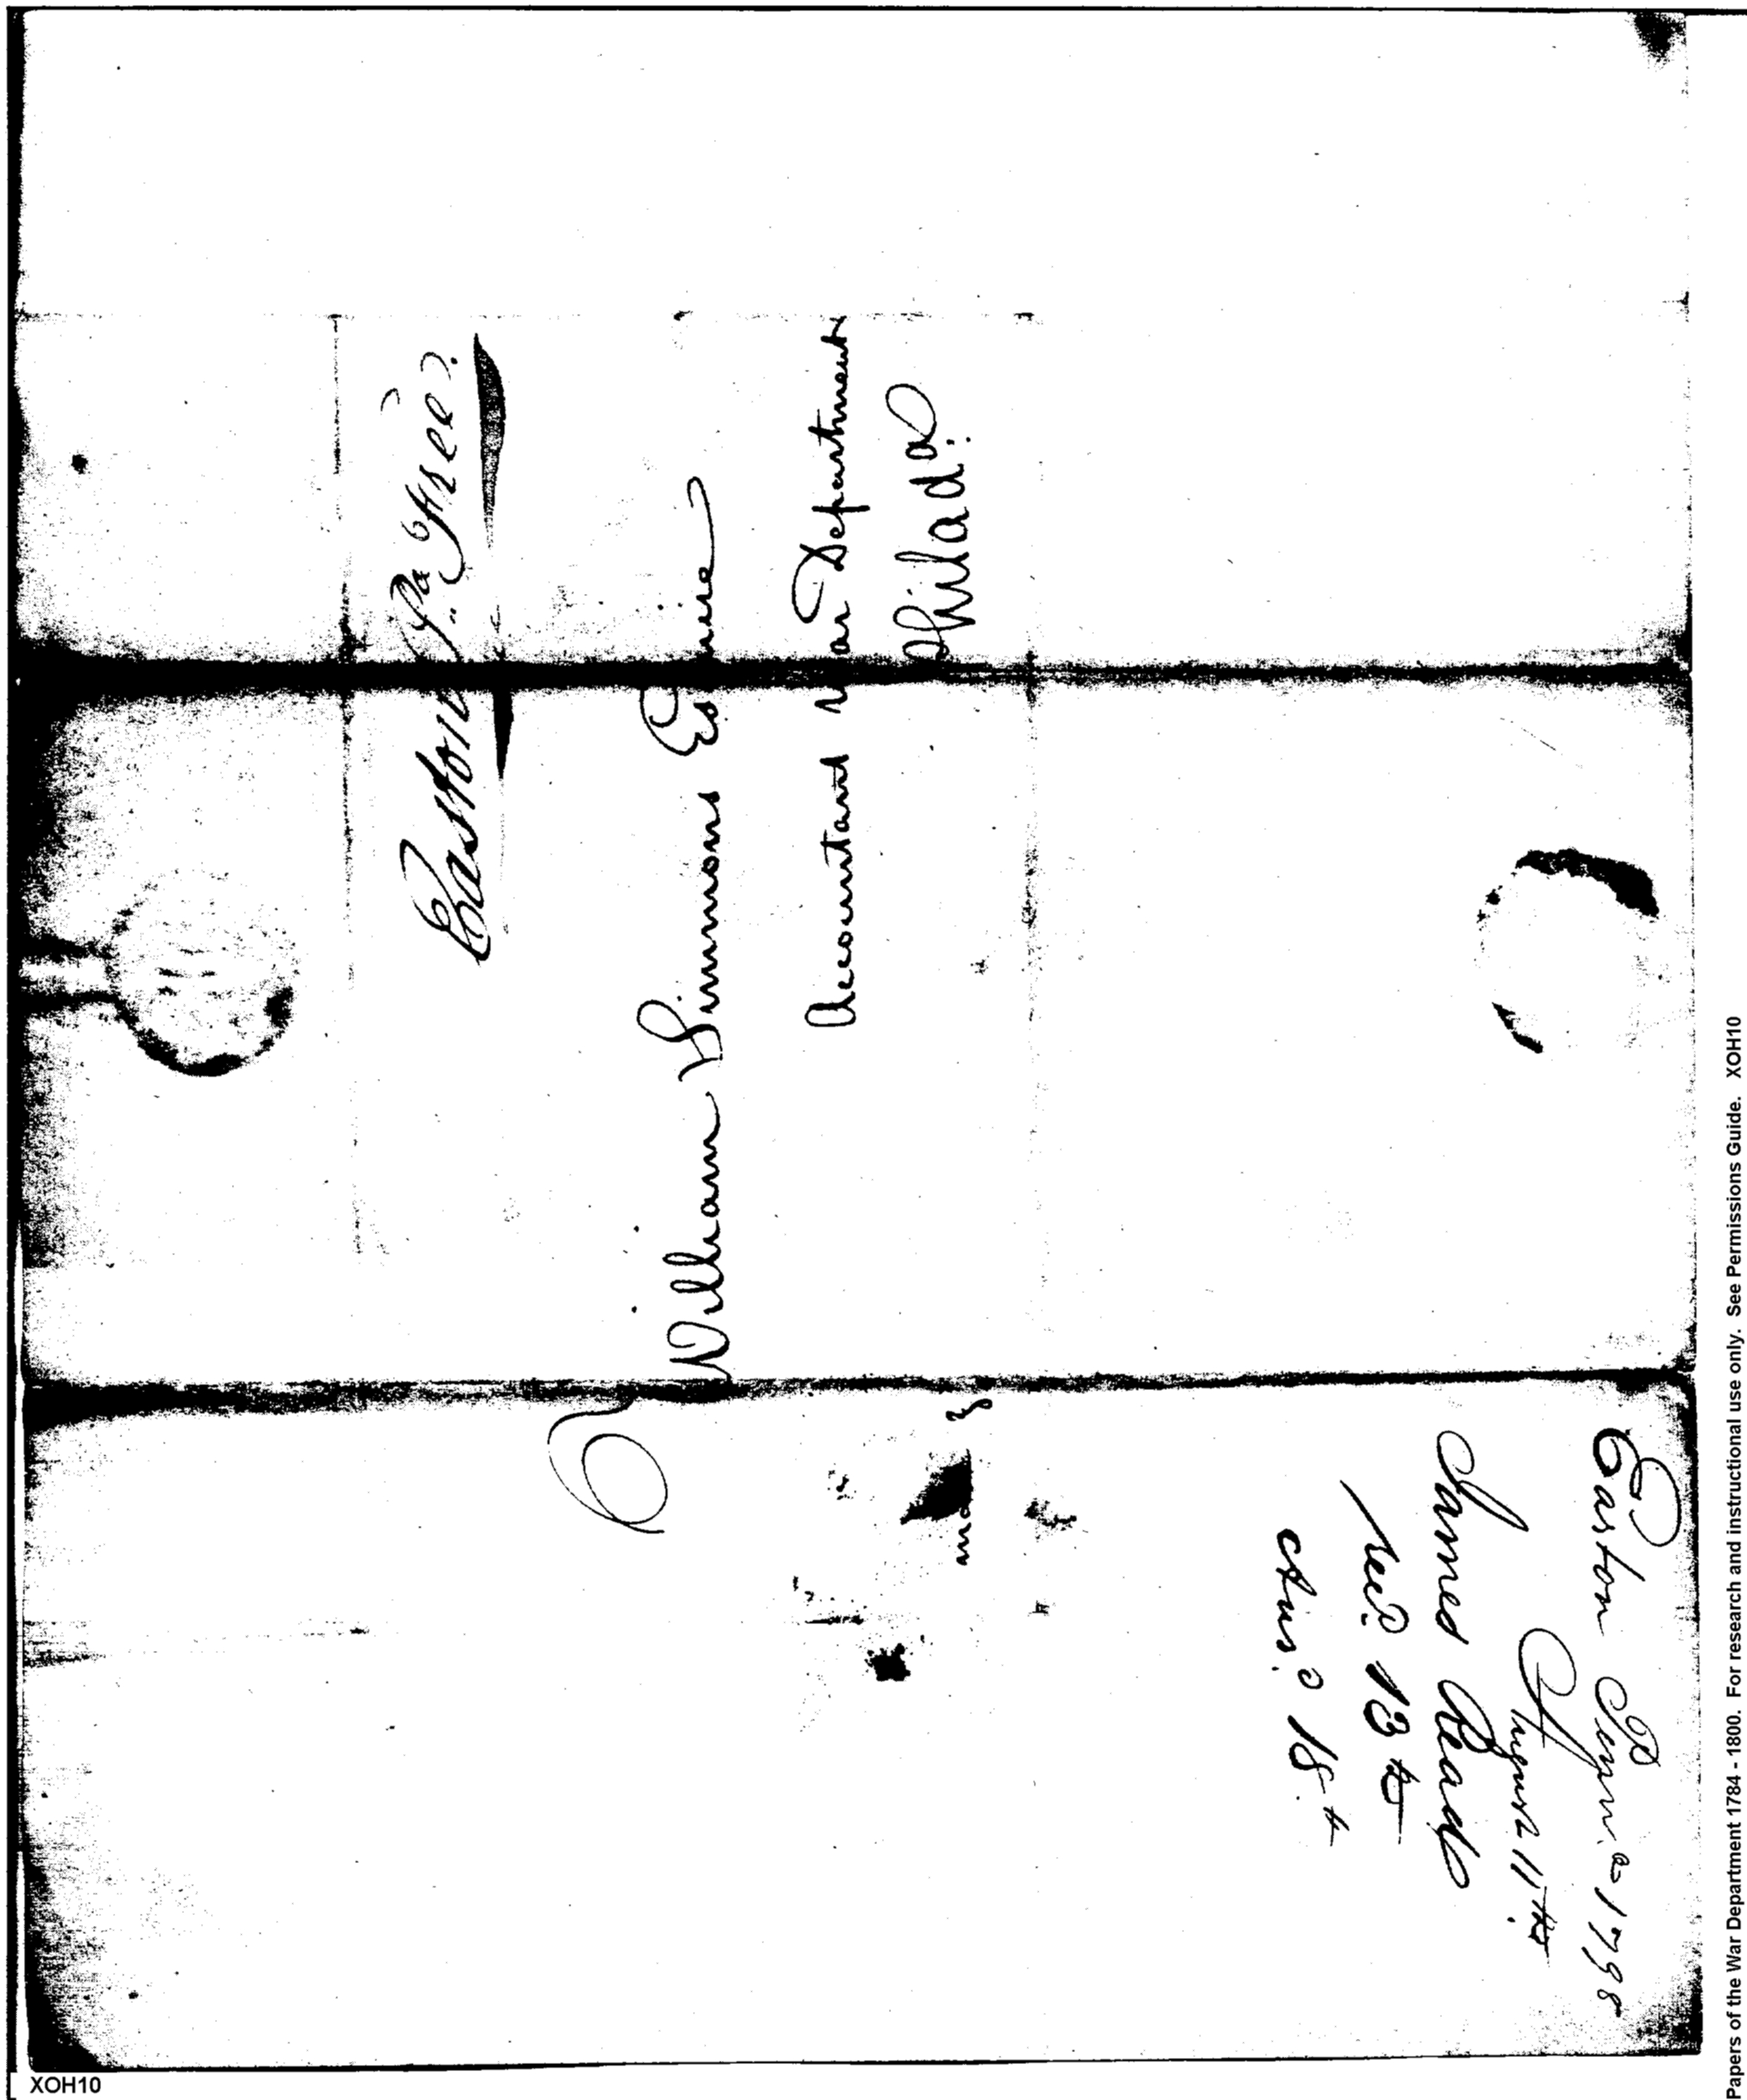 Easton Pa. Free.
William Simmons Esquire
Accountant War Department
Philada.
Easton Penna. 1798
August 11th
James Read
Recd. 13th
Ansd. 18th
XOH10
Papers of the War Department 1784 - 1800. For research and instructional use only. See Permissions Guide. XOH10